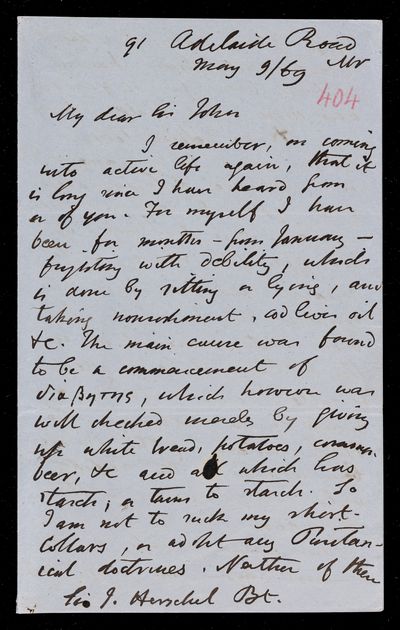 91 Adelaide Road
May 9/69 NW
404
My dear Sir John
I remember, on coming
into active life again, that it
is long since I have heard from
or of you. For myself I have
been for months – from January –
fighting with debility, which
is done by sitting or lying, and
taking nourishment, cod liver oil
&c. The main cause was found
to be a commencement of
which however was
well checked merely by giving
up white bread, potatoes, common
beer, &c and all which has
starch, or turns to starch. So
I am not to suck my shirt-
collars, or adopt any Puritan-
ical doctrines. Neither of them
Sir J. Herschel Bt.